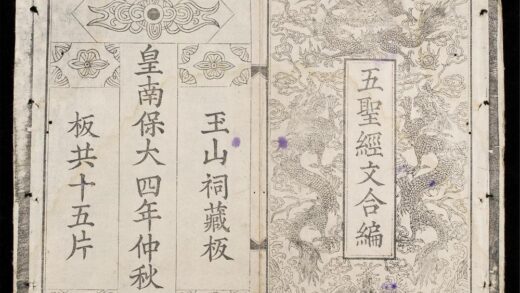 五聖經文合編
玉山祠藏板
皇南保大四年仲秋
板共十五片